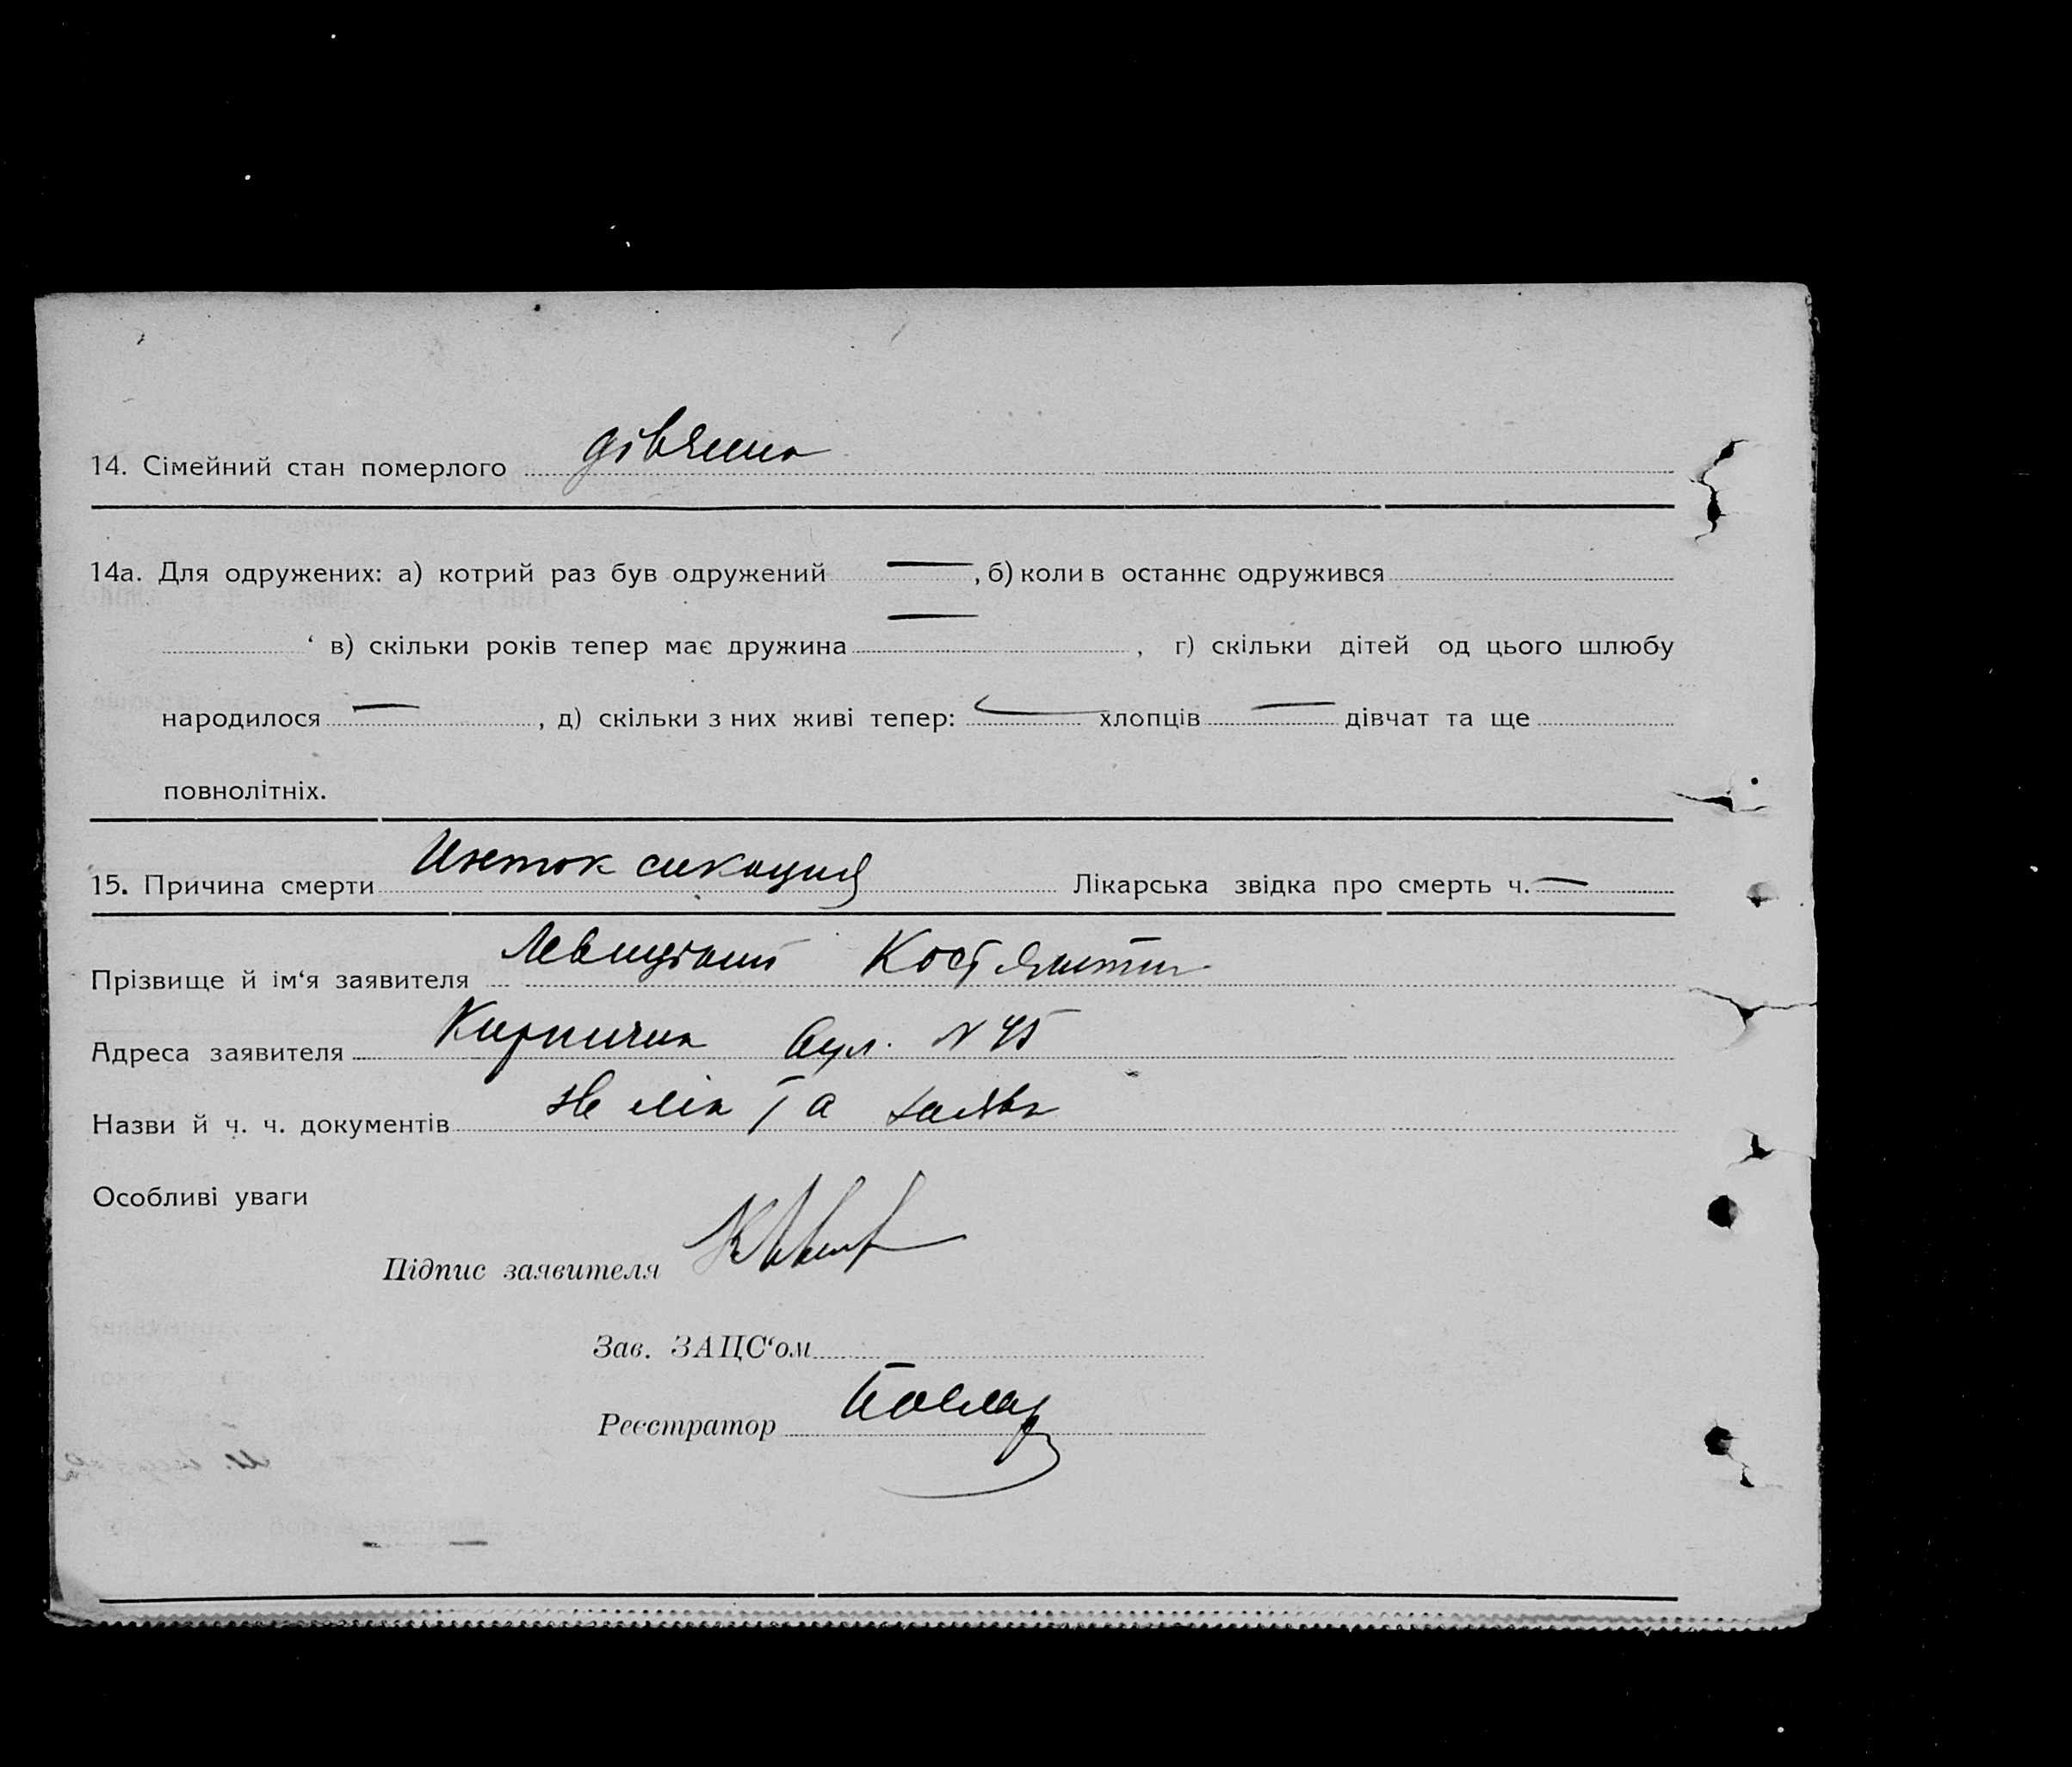 14. Сімейний стан померлого дівчина
14а. Для одружених: а) котрий раз був одружений — , б) коли в останнє одружився
‘ в) скільки років тепер має дружина — , г) скільки дітей од цього шлюбу
народилося — , д) скільки з них живі тепер: — хлопців — дівчат та ще
повнолітніх.
15. Причина смерти Интоксикация Лікарська звідка про смерть ч. —
Прізвище й ім‘я заявителя Левицький Костянтин
Адреса заявителя Кирпична вул. N 45
Назви й ч. ч. документів та заява
Особливі уваги
Підпис заявителя
Зав. ЗАЦС‘ом
Реєстратор